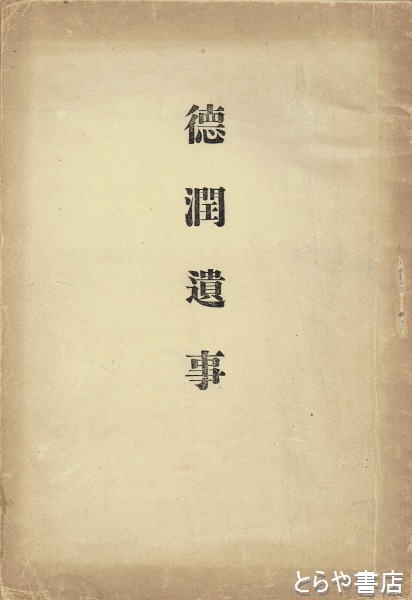 德潤遺事
とらや書店